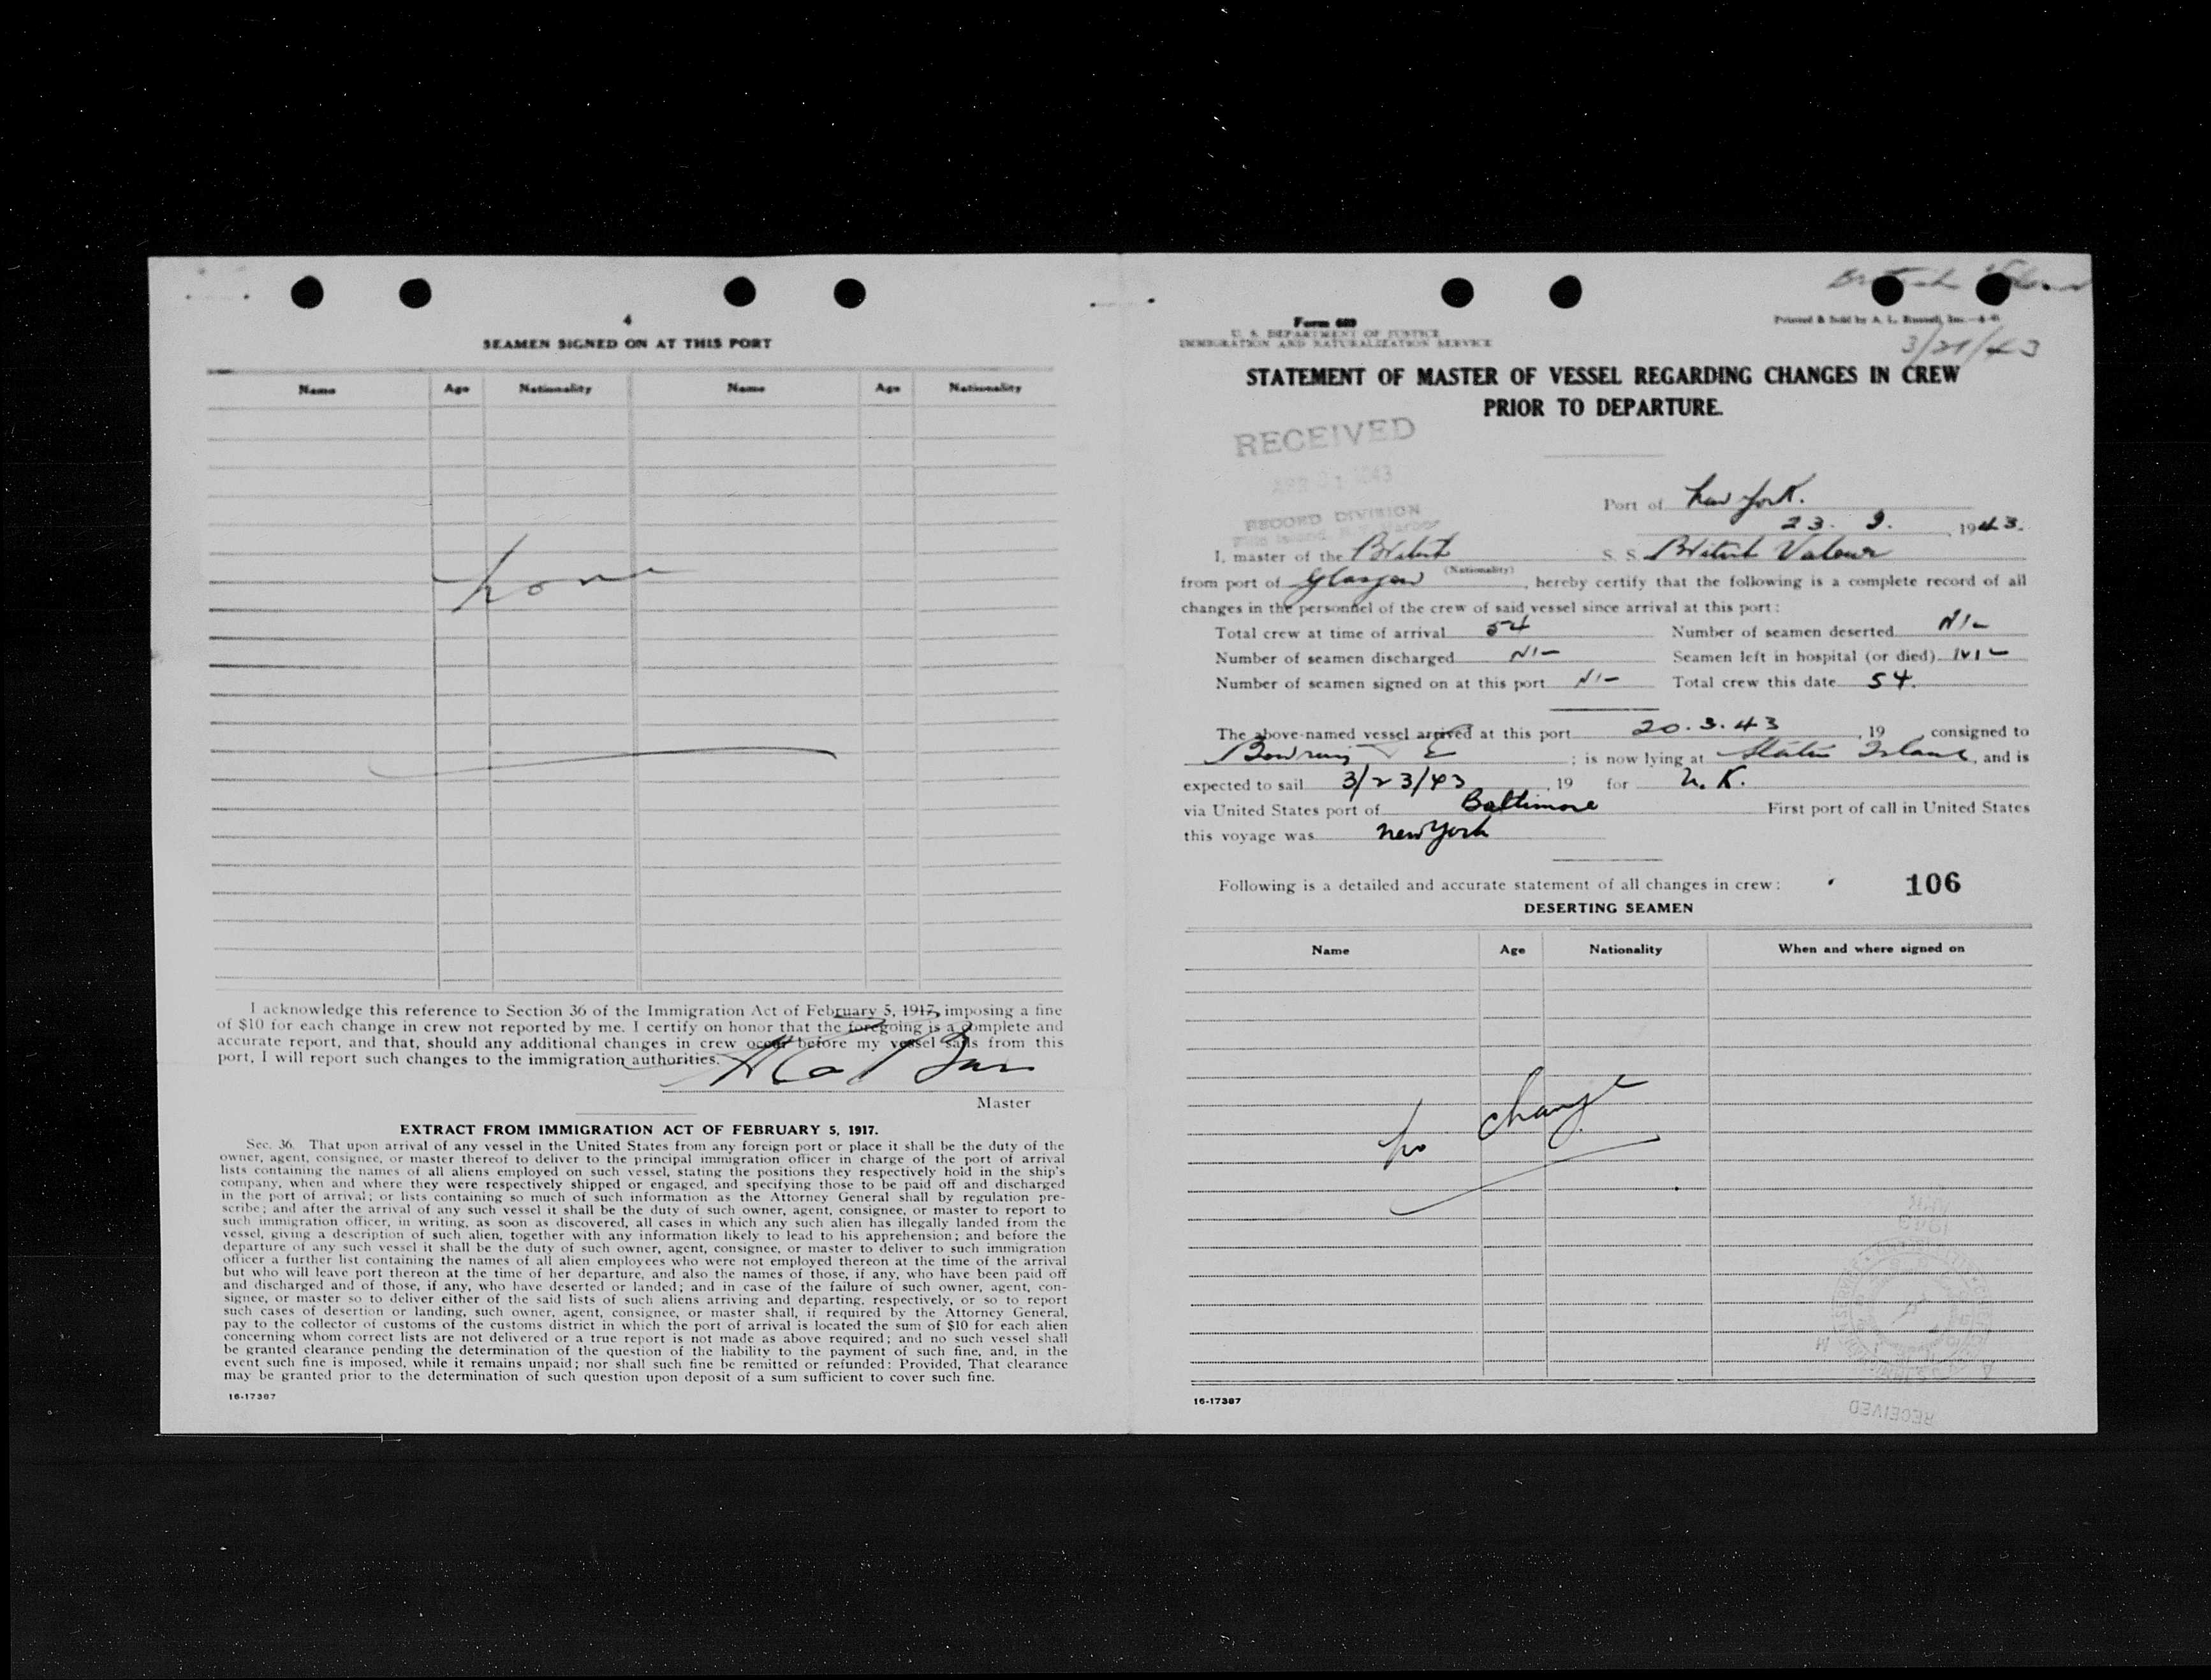 4
SEAMEN SIGNED ON AT THIS PORT
Name Age Nationality Name Age Nationality
None
I acknowledge this reference to Section 36 of the Immigration Act of February 5, 1917, imposing a fine
of $10 for each change in crew not reported by me. I certify on honor that the foregoing is a complete and
accurate report, and that, should any additional changes in crew occur before my vessel sails from this
port, I will report such changes to the immigration authorities.
Master
EXTRACT FROM IMMIGRATION ACT OF FEBRUARY 5, 1917.
Sec. 36. That upon arrival of any vessel in the United States from any foreign port or place it shall be the duty of the
owner, agent, consignee, or master thereof to deliver to the principal immigration officer in charge of the port of arrival
lists containing the names of all aliens employed on such vessel, stating the positions they respectively hold in the ship's
company, when and where they were respectively shipped or engaged, and specifying those to be paid off and discharged
in the port of arrival; or lists containing so much of such information as the Attorney General shall by regulation pre-
scribe; and after the arrival of any such vessel it shall be the duty of such owner, agent, consignee, or master to report to
such immigration officer, in writing, as soon as discovered, all cases in which any such alien has illegally landed from the
vessel, giving a description of such alien, together with any information likely to lead to his apprehension; and before the
departure of any such vessel it shall be the duty of such owner, agent, consignee, or master to deliver to such immigration
officer a further list containing the names of all alien employees who were not employed thereon at the time of the arrival
but who will leave port thereon at the time of her departure, and also the names of those, if any, who have been paid off
and discharged and of those, if any, who have deserted or landed; and in case of the failure of such owner, agent, con-
signee, or master so to deliver either of the said lists of such aliens arriving and departing, respectively, or so to report
such cases of desertion or landing, such owner, agent, consignee, or master shall, if required by the Attorney General,
pay to the collector of customs of the customs district in which the port of arrival is located the sum of $10 for each alien
concerning whom correct lists are not delivered or a true report is not made as above required; and no such vessel shall
be granted clearance pending the determination of the question of the liability to the payment of such fine, and, in the
event such fine is imposed, while it remains unpaid; nor shall such fine be remitted or refunded: Provided, That clearance
may be granted prior to the determination of such question upon deposit of a sum sufficient to cover such fine.
16-17387
British
Form 689
U. S. DEPARTMENT OF JUSTICE
IMMIGRATION AND NATURALIZATION SERVICE
Printed & Sold by A. L. Russell, Inc.
3/21/43
STATEMENT OF MASTER OF VESSEL REGARDING CHANGES IN CREW
PRIOR TO DEPARTURE.
RECEIVED
1943
RECORD DIVISION
Ellis Island, N.Y. Harbor
Port of New York.
23. 3. 1943.
I, master of the British S. S. British Valour
(Nationality)
from port of Glasgow, hereby certify that the following is a complete record of all
changes in the personnel of the crew of said vessel since arrival at this port:
Total crew at time of arrival 54 Number of seamen deserted Nil
Number of seamen discharged Nil Seamen left in hospital (or died) Nil
Number of seamen signed on at this port Nil Total crew this date 54.
The above-named vessel arrived at this port 20.3.43, 19 , consigned to
Bowring; is now lying at Staten Island, and is
expected to sail 3/23/43, 19 for U. K.
via United States port of Baltimore First port of call in United States
this voyage was New York
Following is a detailed and accurate statement of all changes in crew:
106
DESERTING SEAMEN
Name Age Nationality When and where signed on
No change
RECEIVED
16-17387